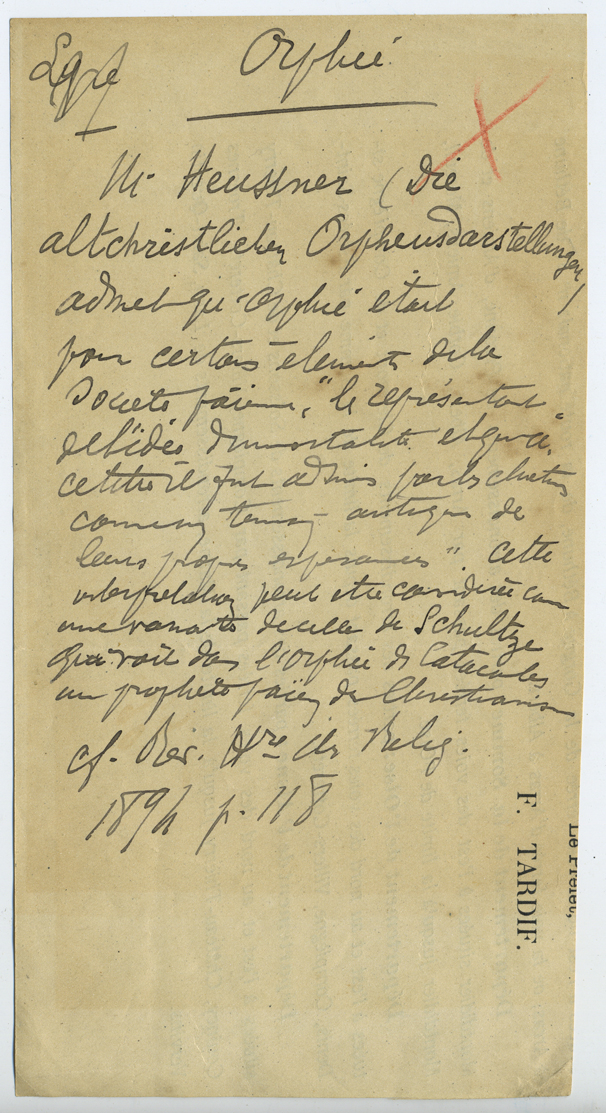 Orphée
Mr Heussner (Die
altchristlichen Orpheusdarstellungen)
admet qu'Orphée était
pour certains éléments de la
Société païenne, "le représentant
de l'idée d'immortalité et qu'à
ce titre il fut admis par les chrétiens
comme témoin antique de
leurs propres espérances". Cette
interprétation peut être considérée comme
une variante de celle de Schultze
qui voit dans l'Orphée des Catacombes
un prophète païen du Christianisme
cf. Rev. Hre des Relig.
1894 p. 118
Le Préfet,
F. TARDIF.